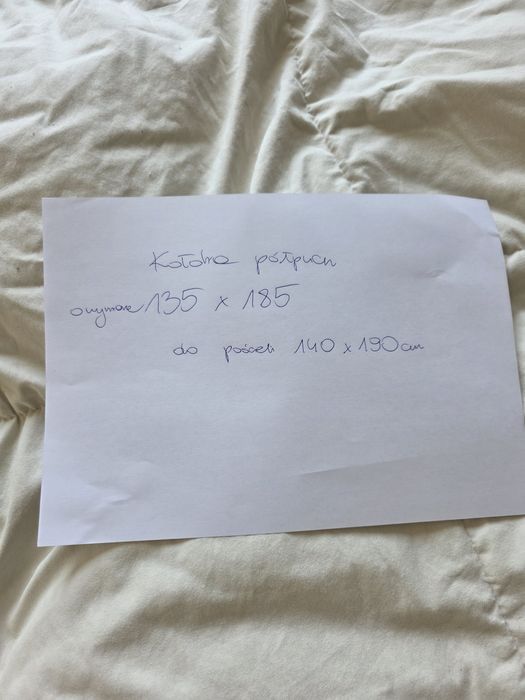 Kołdra półpuch
o wymiarze 135 x 185
do pościeli 140 x 190 cm